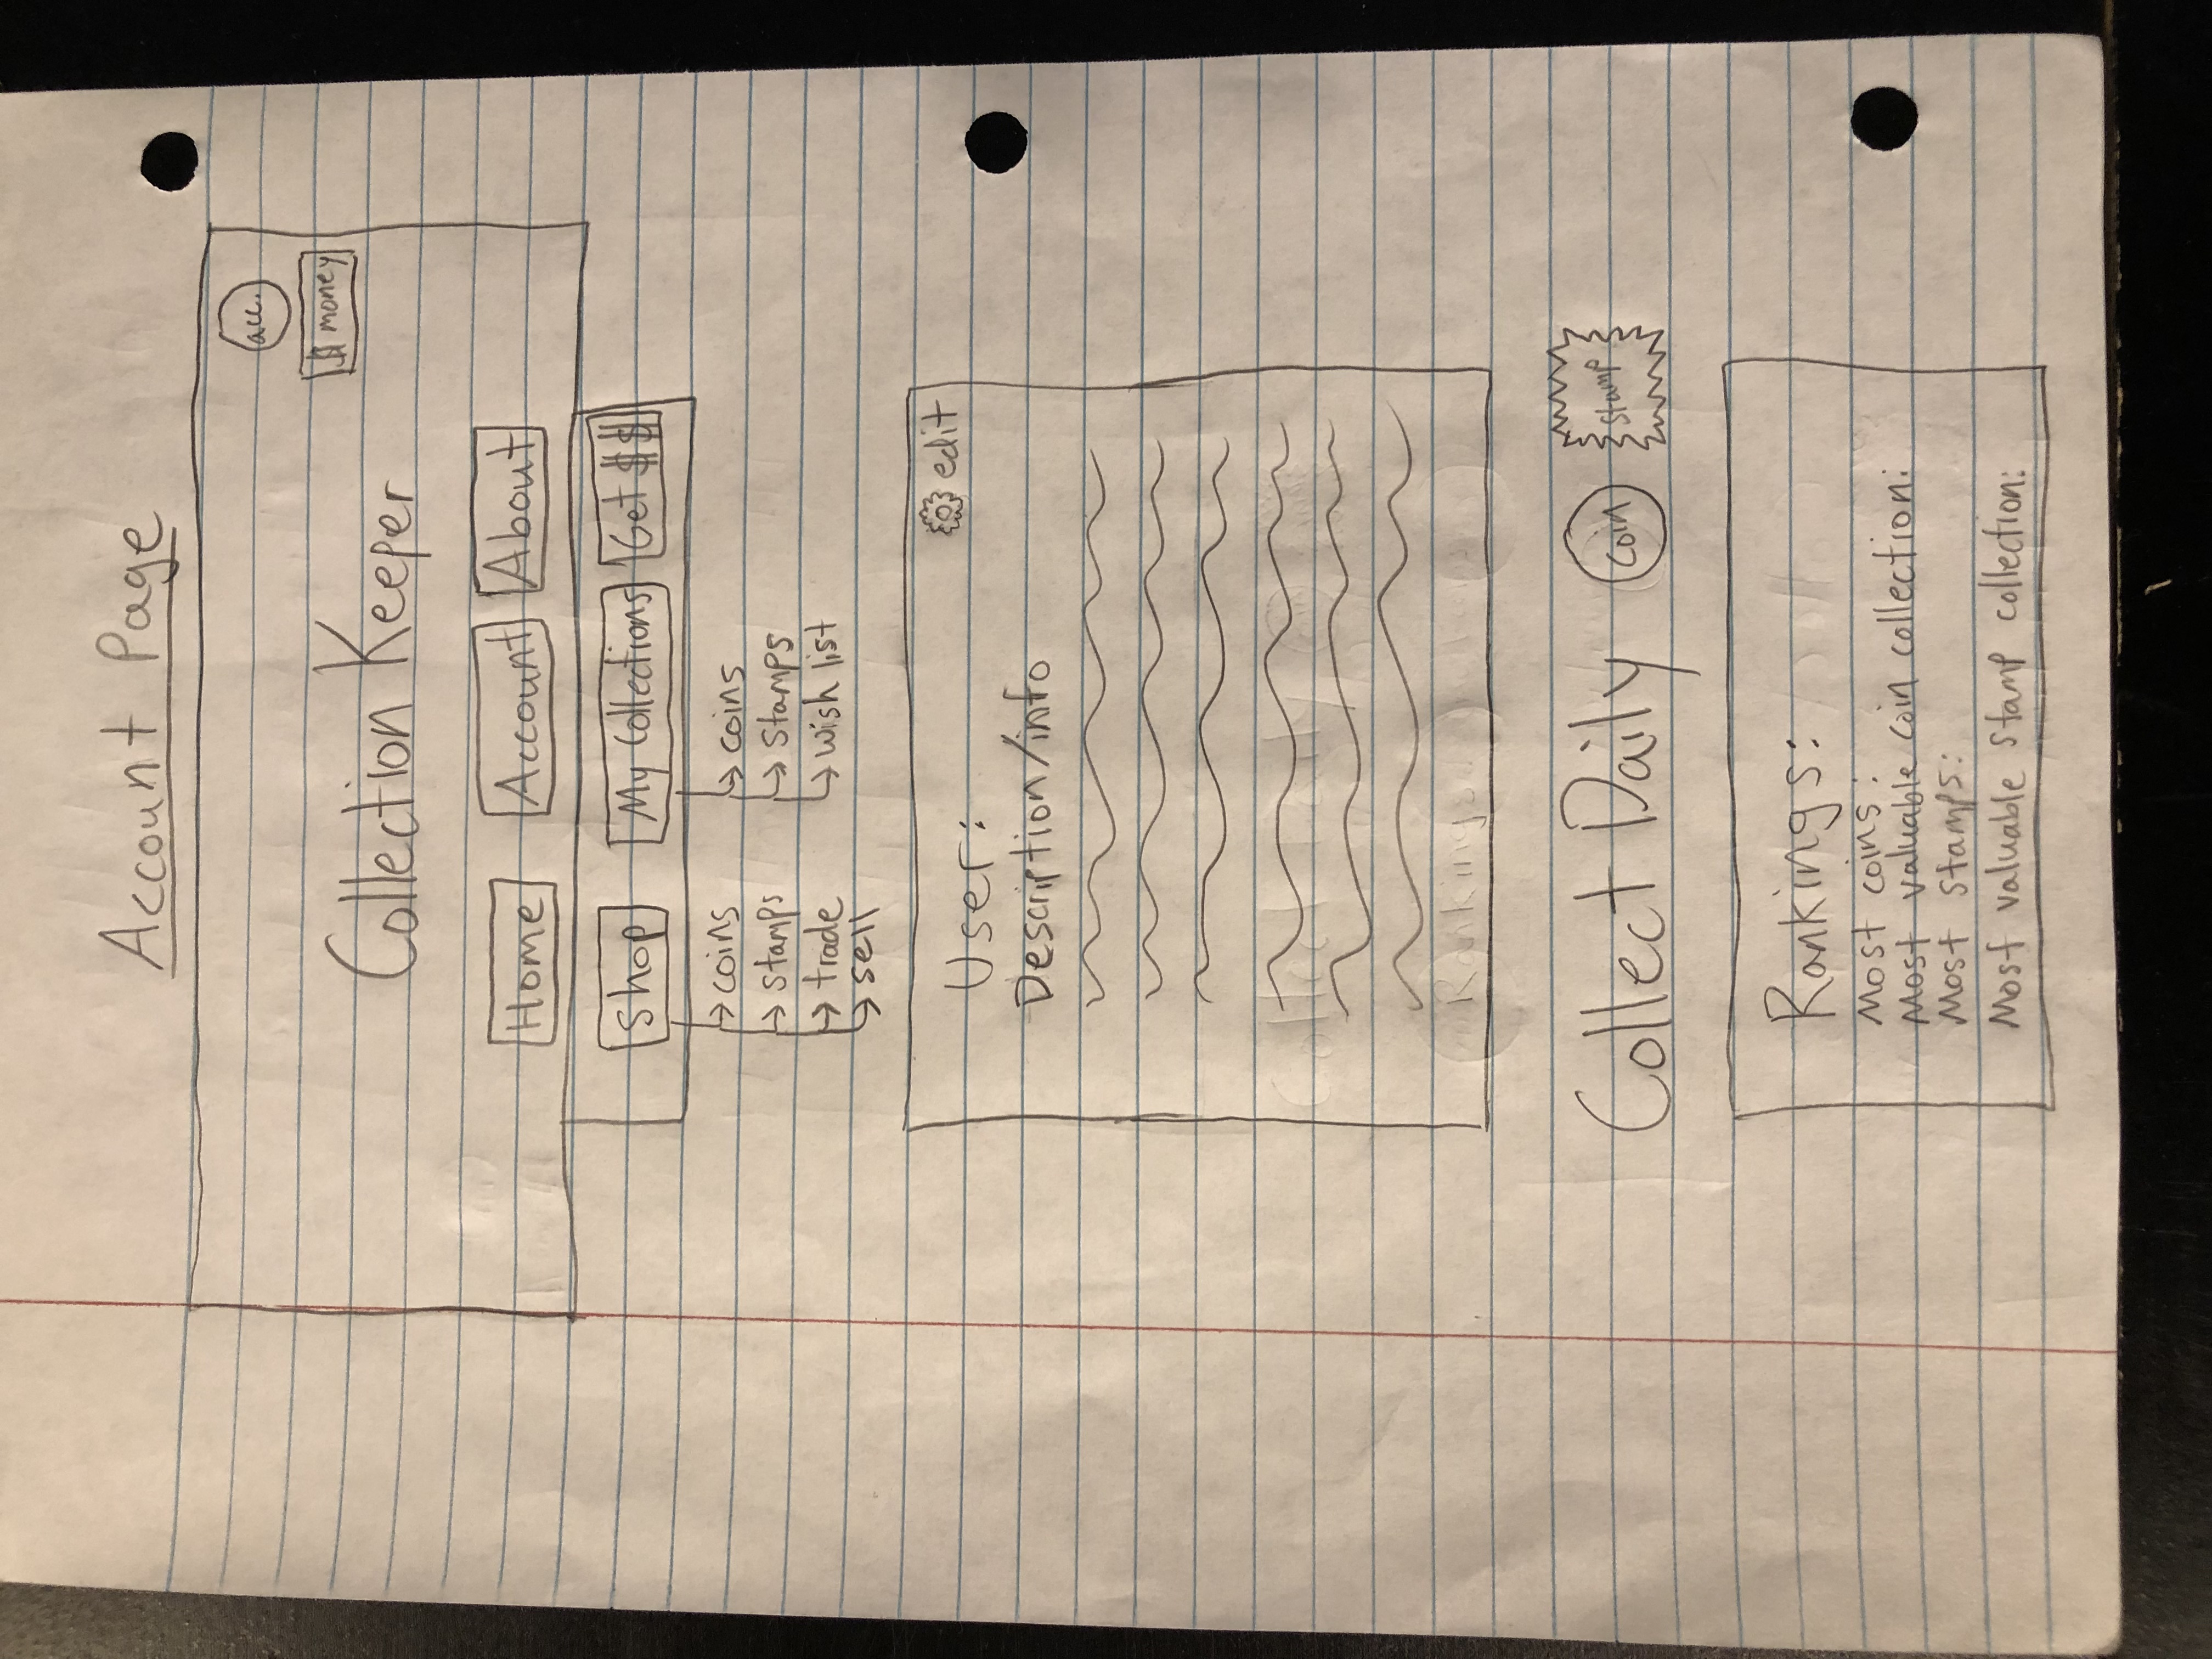 Account Page
acc.
$ money
Collection Keeper
Home Account About
Shop My Collections Get $$
coins coins
stamps stamps
trade wish list
sell
edit
User:
Description/info
Collect Daily coin stamp
Rankings:
Most coins:
Most valuable coin collection:
Most stamps:
Most valuable stamp collection: